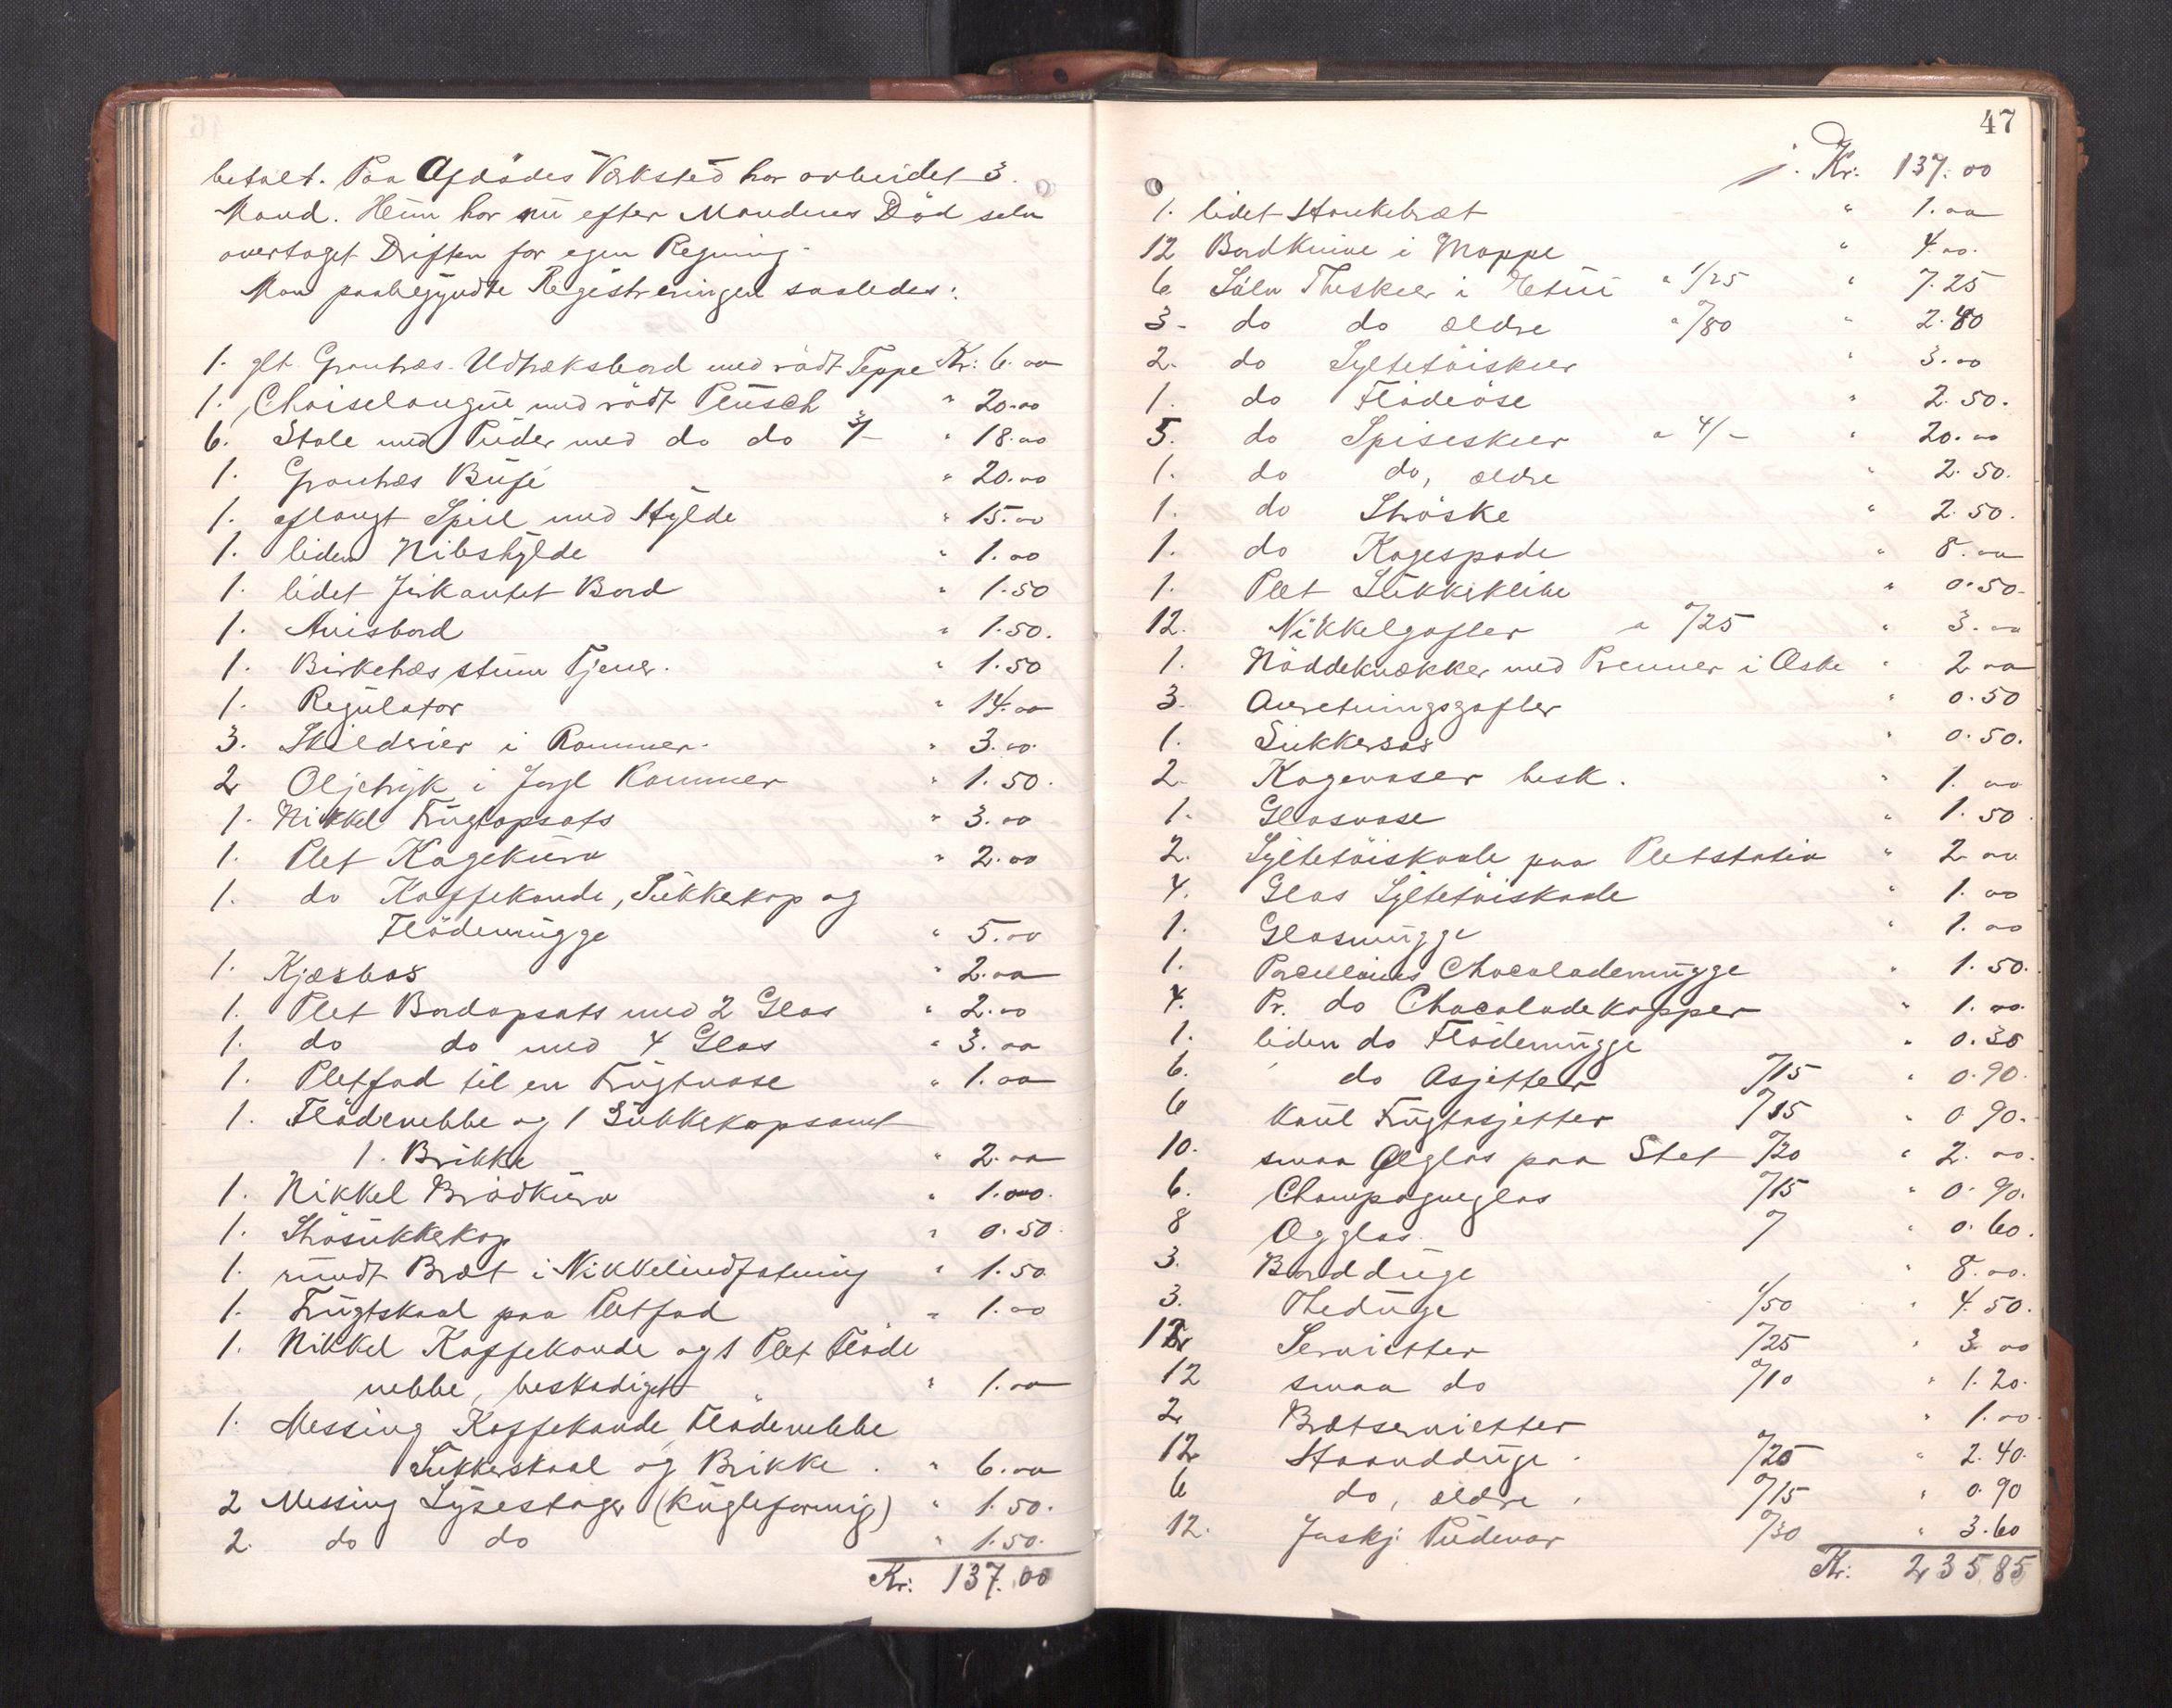 betalt. Paa Afdödes Værksted har arbeidet 3
Mand. Hun har nu efter Mandens Död selv
overtaget Driften for egen Regning.
Man paabegyndte Registreringen saaledes:
1. glt Grantræs Udtræksbord med rödt Teppe Kr: 6.00
1. Chaiselongue med rödt Plüsch " 20.00
6. Stole med Puder med do do 3/- " 18.00
1. Grantræs Buffé " 20.00
1. aflangt Speil med Hylde " 15.00
1. liden Nibshylde " 1.00
1. lidet firkantet Bord " 1.50
1. Avisbord " 1.50.
1. Birketræs stum Tjener. " 1.50
1. Regulator " 14.00
3. Skilderier i Rammer. " 3.00.
2 Oljetryk i forgl Rammer " 1.50.
1. Nikkel Frugtopsats " 3.00
1. Plet Kagekurv " 2.00
1. do Kaffekande, Sukkerkop og
Flödemugge " 5.00
1. Kjæsbos " 2.00
1. Plet Bordopsats med 2 Glas " 2.00
1. do do med 4 Glas " 3.00
1. Pletfad til en Frugtvase " 1.00
1. Flödenebbe og 1 Sukkerkop samt
1. Brikke " 2.00
1. Nikkel Brödkurv " 1.00.
1. Strösukkerkop " 0.50.
1. rundt Bræt i Nikkelindfatning " 1.50
1. Frugtskaal paa Pletfad " 1.00
1. Nikkel Kaffekande og 1 Plet Flöde
nebbe, beskadiget " 1.00
1. Messing Kaffekande, Flödenebbe
Sukkerskaal og Brikke. " 6.00
2 Messing Lysestager (Kugleformig) " 1.50.
2. do do " 1.50.
Kr: 137.00
47
Kr: 137.00
1. lidet Hankebræt " 1.00
12 Bordknive i Mappe " 4.00.
6 Sölv Theskeer i Etui a 1/25 " 7.25
3. do do ældre a "/80 " 2.40
2. do Syltetöiskeer " 3.00
1. do Flödeöse " 2.50.
5. do Spiseskeer a 4/- " 20.00
1. do do, ældre " 2.50.
1. do Ströske " 2.50.
1. do Kagespade " 8.00
1. Plet Sukkerklibe " 0.50.
12. Nikkelgafler a "/25 " 3.00
1. Nöddeknækker med Prenner i Æske " 2.00
3. Anretningsgafler " 0.50
1. Sukkersax " 0.50.
2. Kagevaser besk. " 1.00
1. Glasvase " 1.50.
2. Syltetöiskaale paa Pletstativ " 2.00
4. Glas Syltetöiskaale " 1.00
1. Glasmugge " 1.00
1. Porcellains Chocolademugge " 1.50.
4. Pr. do Chocoladekopper " 1.00.
1. liden do Flödemugge " 0.30
6. do Asjetter "/15 " 0.90.
6 Frugtasjetter "/15 " 0.90.
10. smaa Ølglas paa Stet "/20 " 2.00.
6. Champagneglas "/15 " 0.90.
8 Ægglas. " 0.60.
3. Bordduge " 8.00.
3. Theduge 1/50 " 4.50.
12 Servietter "/25 " 3.00
12 smaa do "/10 " 1.20.
2 Brætservietter " 1.00.
12 Haandduge. "/20 " 2.40.
6 do, ældre. "/15 " 0.90
12. forskj. Pudevar "/30 " 3.60
Kr: 235.85